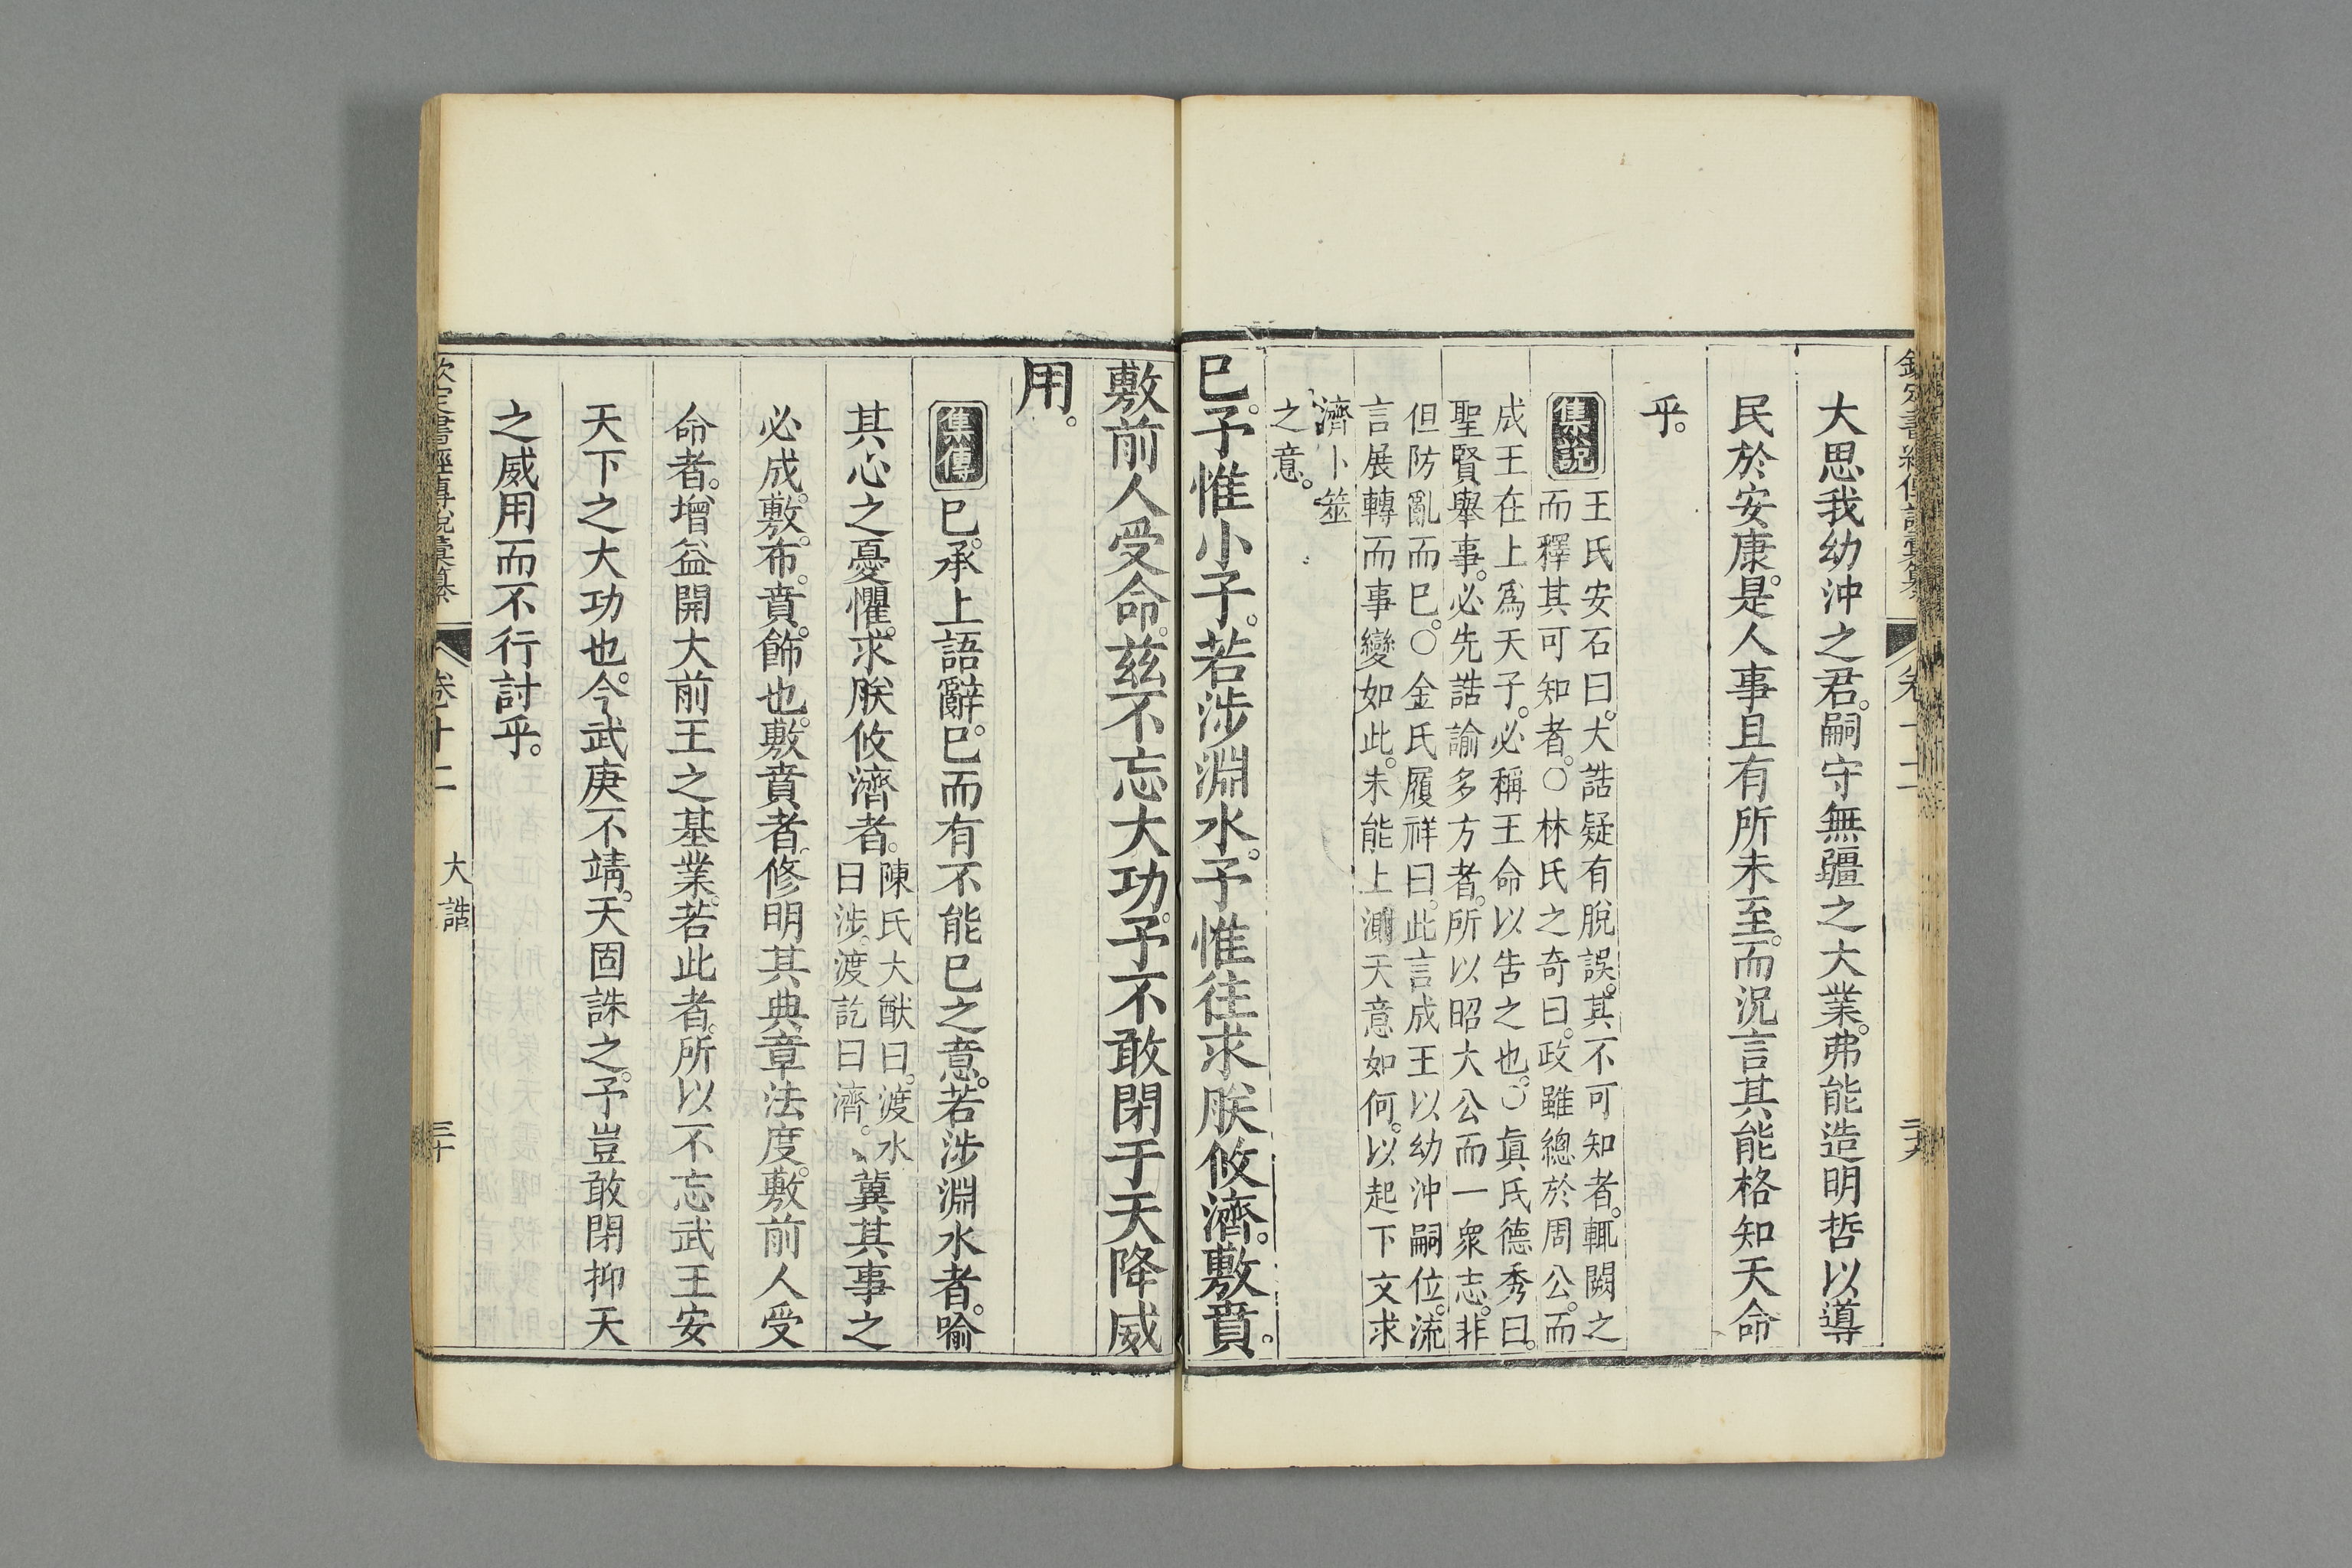 欽定書經傳說彙纂 卷十二 大誥 二十九
大思我幼沖之君。嗣守無疆之大業。弗能造明哲以導
民於安康。是人事且有所未至。而況言其能格知天命
乎。
集說
王氏安石曰。大誥疑有脫誤。其不可知者。輒闕之
而釋其可知者。○林氏之奇曰。政雖總於周公。而
成王在上爲天子。必稱王命以告之也。○眞氏德秀曰。
聖賢舉事。必先誥諭多方者。所以昭大公而一衆志。非
但防亂而已。○金氏履祥曰。此言成王以幼沖嗣位。流
言展轉而事變如此。未能上測天意如何。以起下文求
濟卜筮
之意。
已。予惟小子。若涉淵水。予惟往求朕攸濟。敷賁。
敷前人受命。茲不忘大功。予不敢閉于天降威
用。
集傳
已。承上語辭。已而有不能已之意。若涉淵水者。喻
其心之憂懼。求朕攸濟者。
陳氏大猷曰。渡水
曰涉。渡訖曰濟。
冀其事之
必成。敷。布。賁。飾也。敷賁者。修明其典章法度。敷前人受
命者。增益開大前王之基業。若此者。所以不忘武王安
天下之大功也。今武庚不靖。天固誅之。予豈敢閉抑天
之威用而不行討乎。
欽定書經傳說彙纂 卷十二 大誥 三十